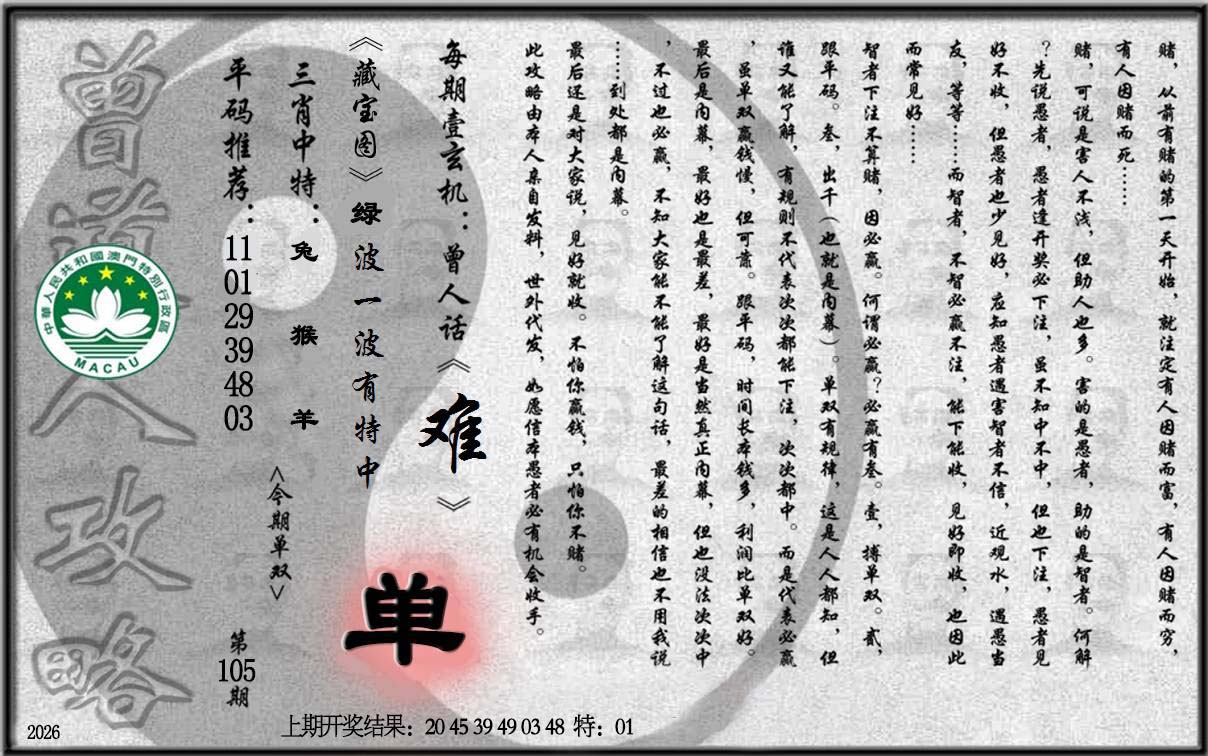 赌，从前有赌的第一天开始，就注定有人因赌而富，有人因赌而穷，
有人因赌而死……
赌，可说是害人不浅，但助人也多。害的是愚者，助的是智者。何解
？先说愚者，愚者逢开奖必下注，虽不知中不中，但也下注，愚者见
好不收，但愚者也少见好，应知愚者遇害智者不信，近观水，遇愚当
友，等等……而智者，不智必赢不注，能下能收，见好即收，也因此
而常见好……
智者下注不算赌，因必赢。何谓必赢？必赢有叁。壹，搏单双。贰，
跟平码。叁，出千（也就是内幕）。单双有规律，这是人人都知，但
谁又能了解，有规则不代表次次都能下注，次次都中。而是代表必赢
，虽单双赢钱慢，但可靠。跟平码，时间长本钱多，利润比单双好。
最后是内幕，最好也是最差，最好是当然真正内幕，但也没法次次中
，不过也必赢，不知大家能不能了解这句话，最差的相信也不用我说
……到处都是内幕。
最后还是对大家说，见好就收。不怕你赢钱，只怕你不赌。
此攻略由本人亲自发料，世外代发，如愿信本愚者必有机会收手。
每期壹玄机：曾人话《难》
《藏宝图》绿波一波有特中
单
三肖中特：兔 猴 羊
<今期单双>
平码推荐：11 01 29 39 48 03
第105期
曾道人攻略
中華人民共和國澳門特別行政區
MACAU
2026
上期开奖结果：20 45 39 49 03 48 特：01